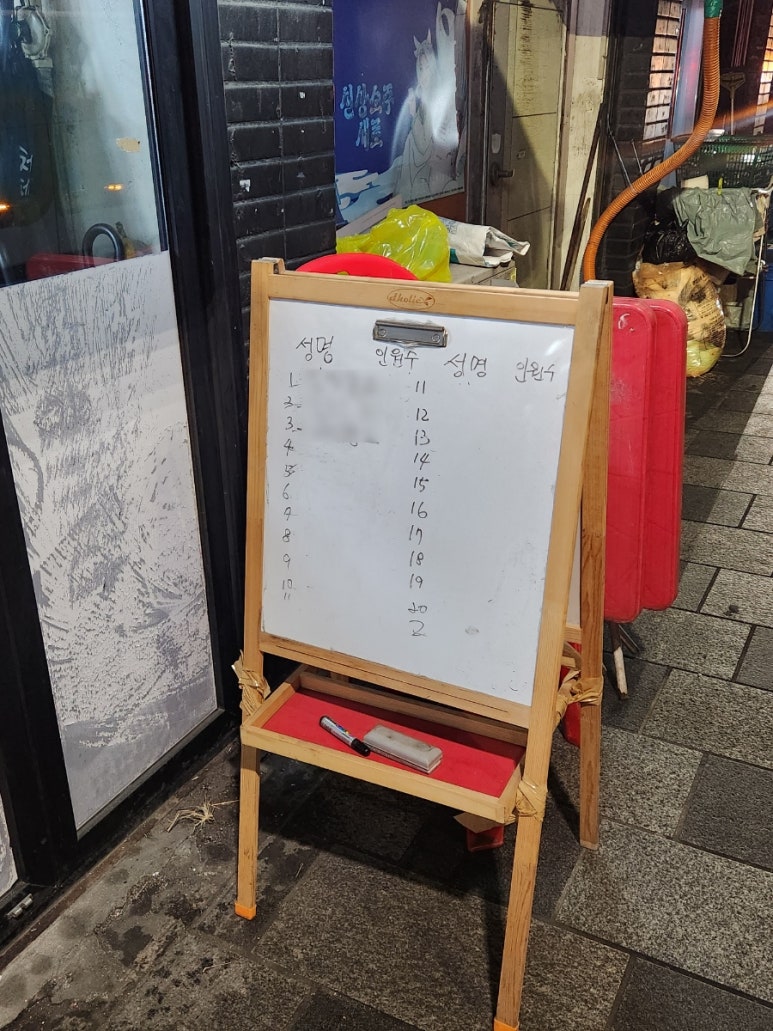 신상소주
새로
dholic
성명 인원수 성명 인원수
1 11
2 12
3 13
4 14
5 15
6 16
7 17
8 18
9 19
10 20
11 2